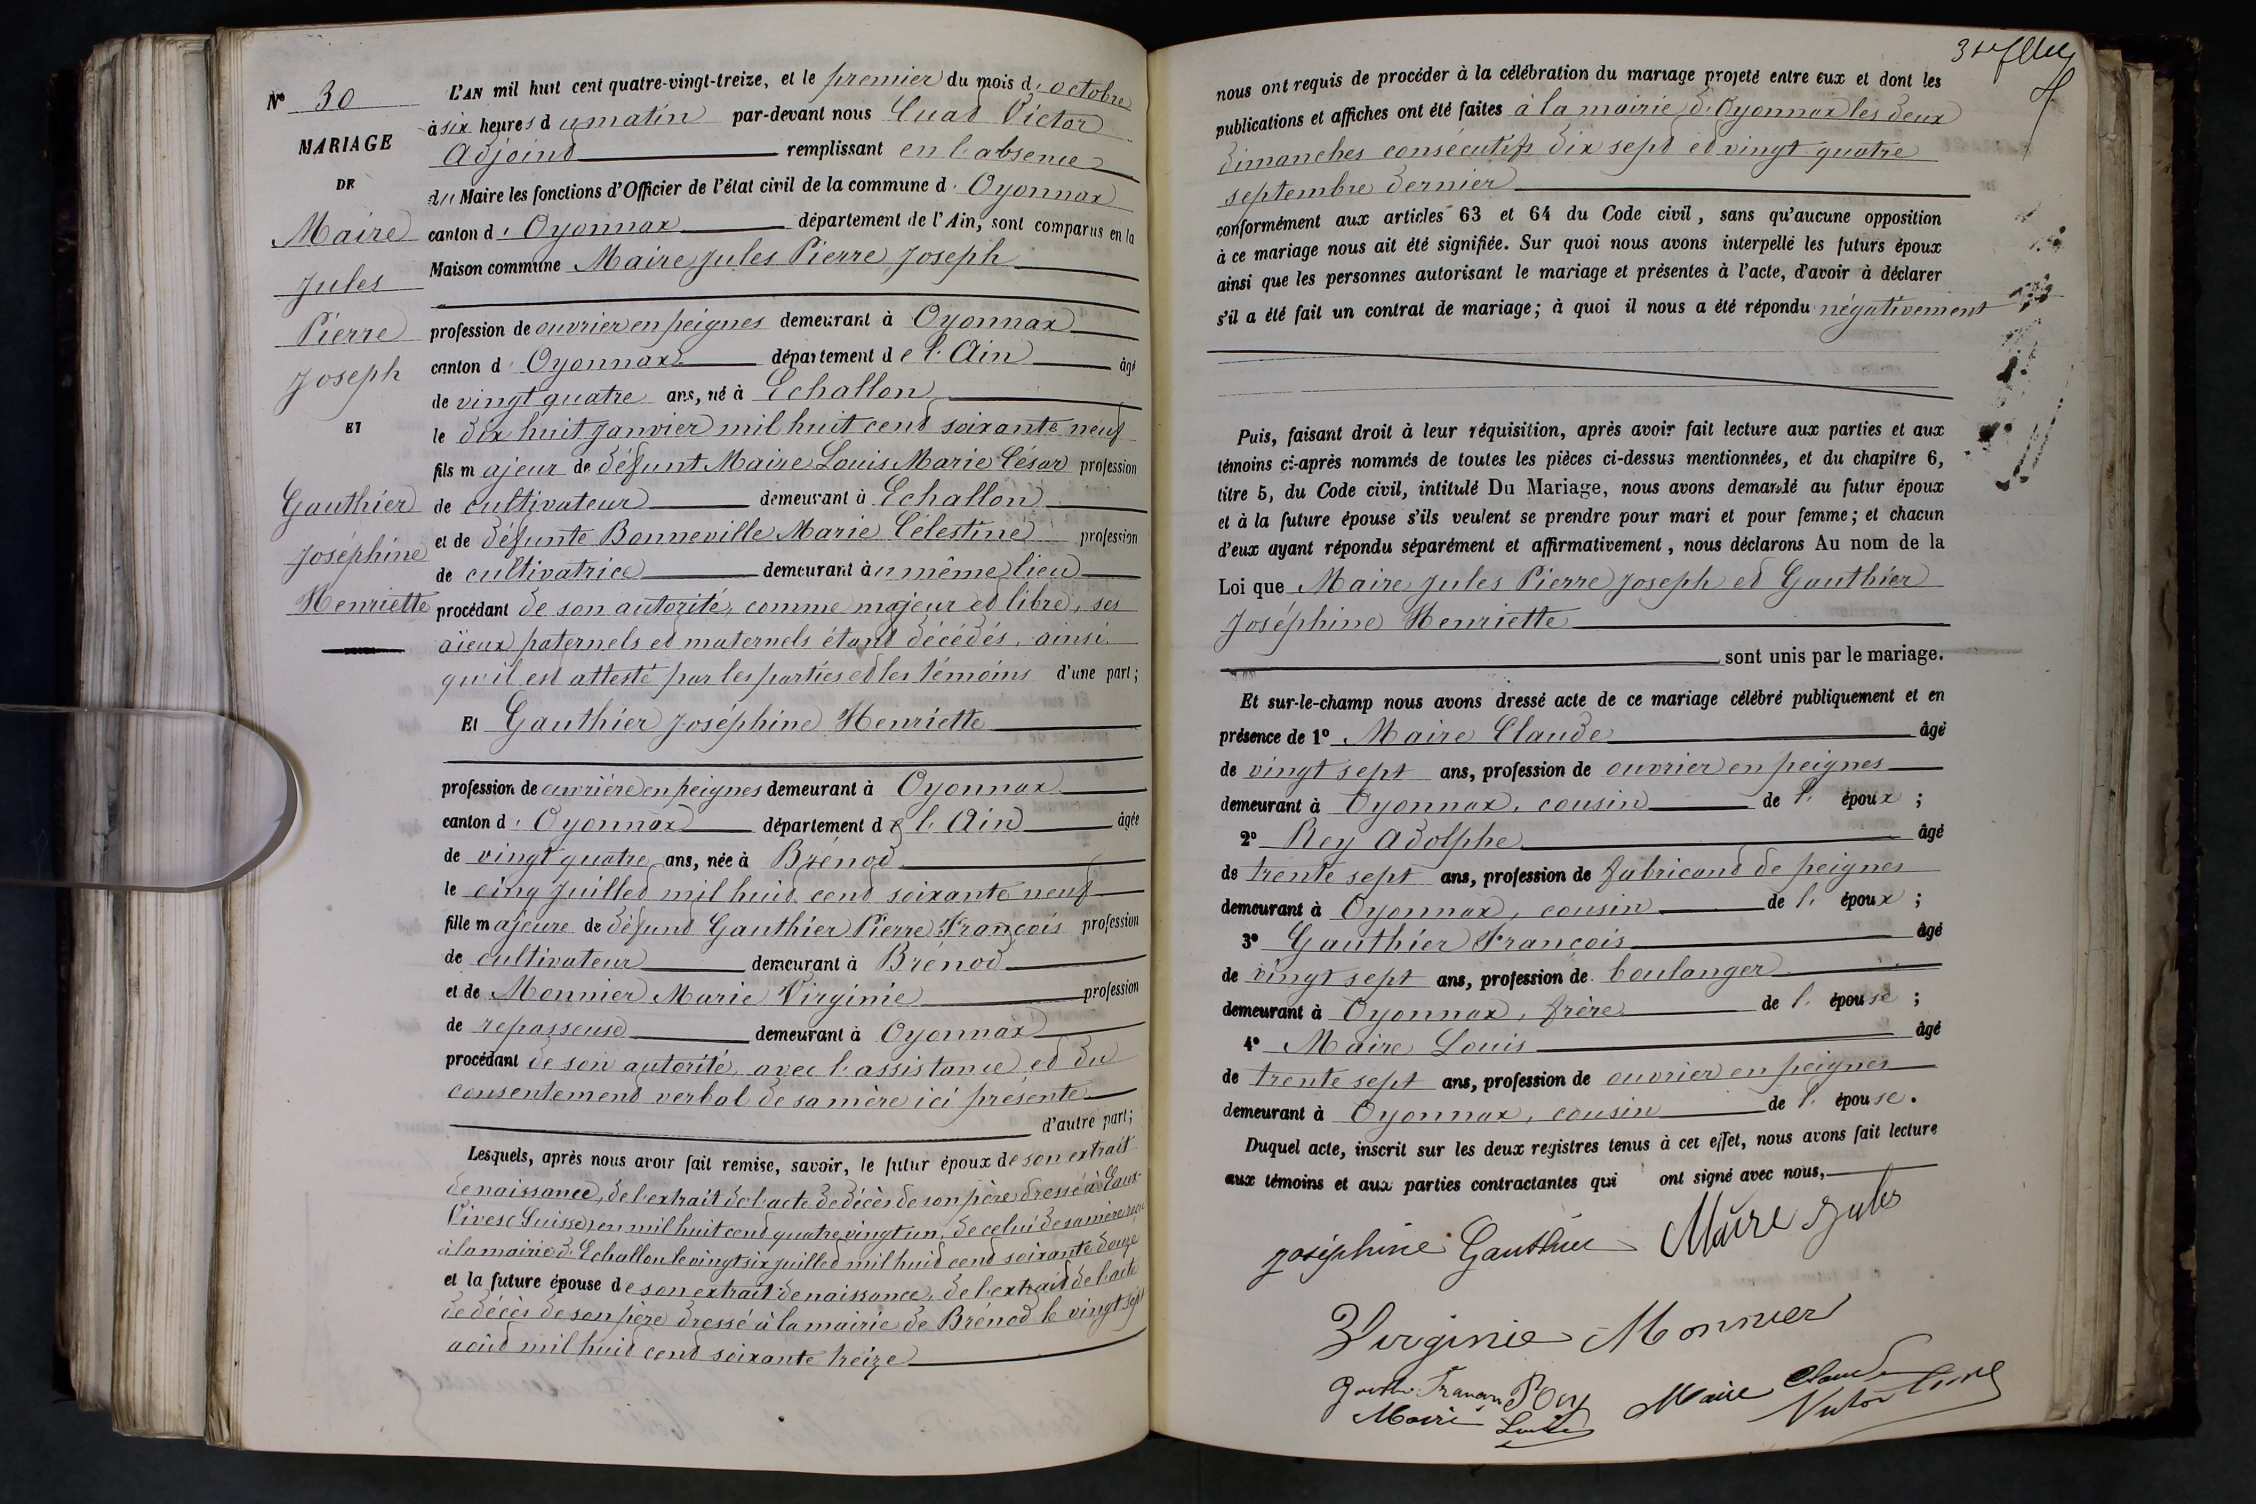 N° 30
MARIAGE
DE
Maire
Jules
Pierre
Joseph
ET
Gauthier
Joséphine
Henriette
L'AN mil huit cent quatre-vingt-treize, et le premier du mois d'octobre
à six heures du matin par-devant nous Cuaz Victor
Adjoint remplissant en l'absence
du Maire les fonctions d'Officier de l'état civil de la commune d'Oyonnax
canton d'Oyonnax département de l'Ain, sont comparus en la
Maison commune Maire Jules Pierre Joseph
profession de ouvrier en peignes demeurant à Oyonnax
canton d'Oyonnax département de l'Ain âgé
de vingt quatre ans, né à Echallon
le dix huit janvier mil huit cent soixante neuf
fils majeur de défunt Maire Louis Marie César profession
de cultivateur demeurant à Echallon
et de défunte Bonneville Marie Célestine profession
de cultivatrice demeurant au même lieu
procédant de son autorité, comme majeur et libre, ses
aïeux paternels et maternels étant décédés, ainsi
qu'il est attesté par les parties et les témoins d'une part;
Et Gauthier Joséphine Henriette
profession de ouvrière en peignes demeurant à Oyonnax
canton d'Oyonnax département de l'Ain âgée
de vingt quatre ans, née à Brénod
le cinq juillet mil huit cent soixante neuf
fille majeure de défunt Gauthier Pierre François profession
de cultivateur demeurant à Brénod
et de Monnier Marie Virginie profession
de repasseuse demeurant à Oyonnax
procédant de son autorité, avec l'assistance et du
consentement verbal de sa mère ici présente
d'autre part;
Lesquels, après nous avoir fait remise, savoir, le futur époux de son extrait
de naissance, de l'extrait de l'acte de décès de son père dressé à Eaux-
Vives (Suisse) en mil huit cent quatre vingt un, de celui de sa mère reçu
à la mairie d'Echallon le vingt six juillet mil huit cent soixante douze
et la future épouse de son extrait de naissance, de l'extrait de l'acte
de décès de son père dressé à la mairie de Brénod le vingt sept
août mil huit cent soixante treize
nous ont requis de procéder à la célébration du mariage projeté entre eux et dont les
publications et affiches ont été faites à la mairie d'Oyonnax les deux
dimanches consécutifs dix sept et vingt quatre
septembre dernier
conformément aux articles 63 et 64 du Code civil, sans qu'aucune opposition
à ce mariage nous ait été signifiée. Sur quoi nous avons interpellé les futurs époux
ainsi que les personnes autorisant le mariage et présentes à l'acte, d'avoir à déclarer
s'il a été fait un contrat de mariage; à quoi il nous a été répondu négativement
Puis, faisant droit à leur réquisition, après avoir fait lecture aux parties et aux
témoins ci-après nommés de toutes les pièces ci-dessus mentionnées, et du chapitre 6,
titre 5, du Code civil, intitulé Du Mariage, nous avons demandé au futur époux
et à la future épouse s'ils veulent se prendre pour mari et pour femme; et chacun
d'eux ayant répondu séparément et affirmativement, nous déclarons Au nom de la
Loi que Maire Jules Pierre Joseph et Gauthier
Joséphine Henriette
sont unis par le mariage.
Et sur-le-champ nous avons dressé acte de ce mariage célébré publiquement et en
présence de 1° Maire Claude âgé
de vingt sept ans, profession de ouvrier en peignes
demeurant à Oyonnax, cousin de l'époux;
2° Rey Adolphe âgé
de trente sept ans, profession de fabricant de peignes
demeurant à Oyonnax, cousin de l'époux;
3° Gauthier François âgé
de vingt sept ans, profession de boulanger
demeurant à Oyonnax, frère de l'épouse;
4° Maire Louis âgé
de trente sept ans, profession de ouvrier en peignes
demeurant à Oyonnax, cousin de l'épouse.
Duquel acte, inscrit sur les deux registres tenus à cet effet, nous avons fait lecture
aux témoins et aux parties contractantes qui ont signé avec nous,
Joséphine Gauthier Maire Jules
Virginie Monnier
Maire Claude
Maire Louis
Victor